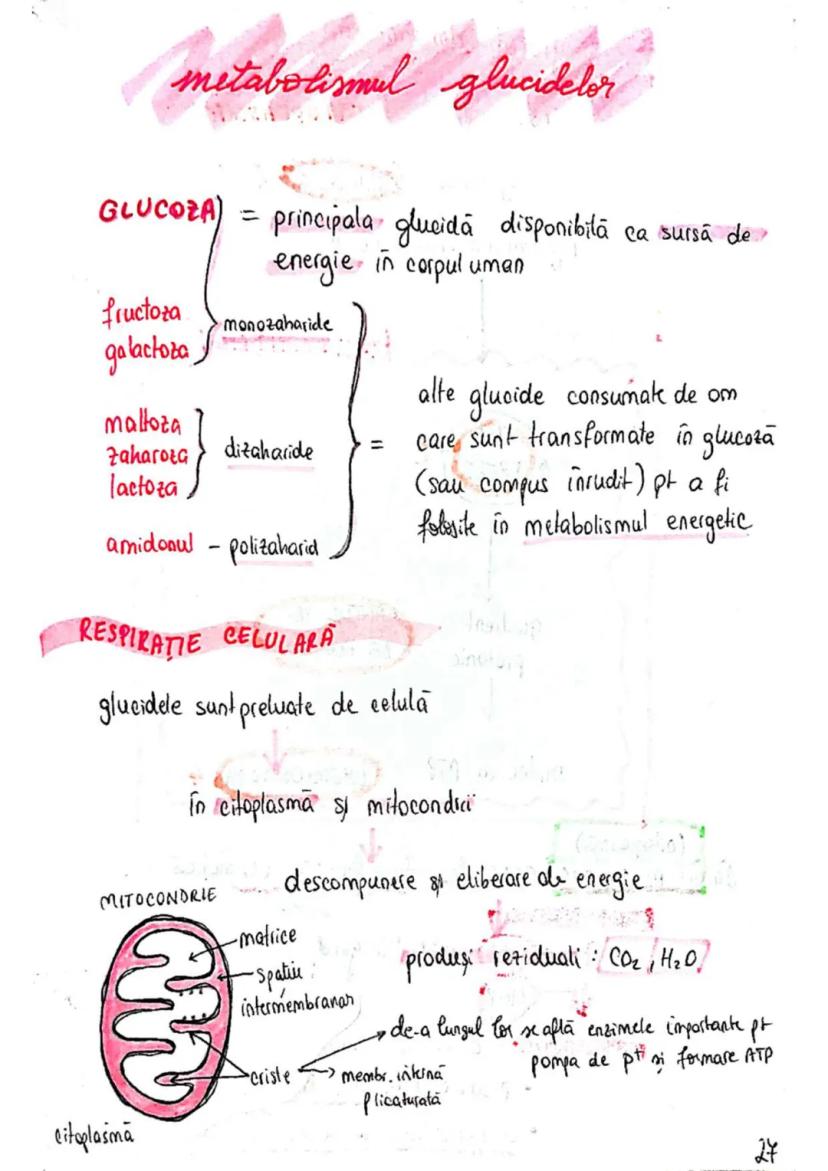 metabolismul glucidelor
GLUCOZA = principala glucidă disponibilă ca sursă de
energie în corpul uman
fructoza
galactoza
monozaharide
maltoza
zaharoza
lactoza
dizaharide
amidonul - polizaharid
= alte glucide consumate de om
care sunt transformate în glucoză
(sau compus înrudit) pt a fi
folosite în metabolismul energetic
RESPIRAȚIE CELULARĂ
glucidele sunt preluate de celulă
în citoplasmă și mitocondrii
descompunere și eliberare de energie
produși reziduali: CO₂, H₂O
MITOCONDRIE
matrice
spațiu
intermembranar
criste → membr. internă
plicaturată
de-a lungul lor se află enzimele importante pt
pompa de p⁺ și formare ATP
citoplasmă
27